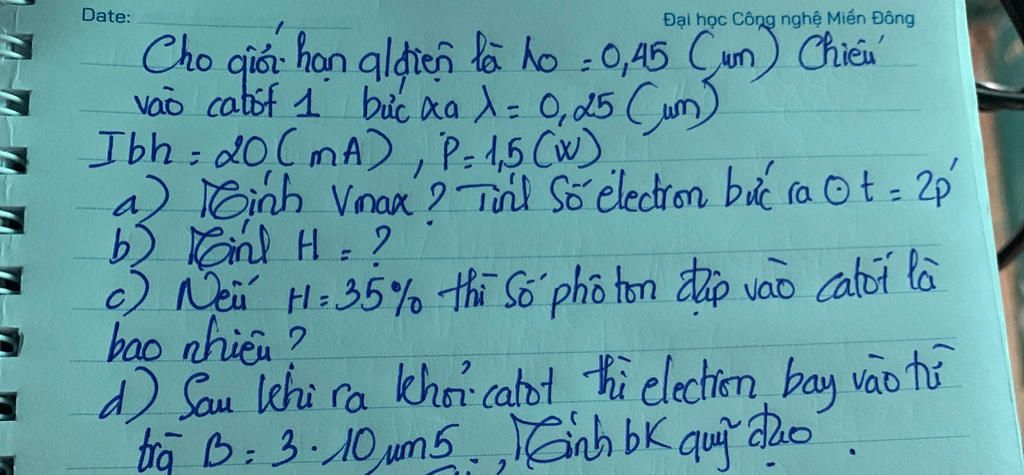 Date: Đại học Công nghệ Miền Đông
Cho giới hạn qlđiện là λo = 0,45 (μm) Chiếu
vào catốt 1 bức xạ λ = 0,25 (μm)
Ibh = 20 (mA), P = 1,5 (W)
a) Tính Vmax? Tính số electron bức ra ở t = 2p'
b) Tính H = ?
c) Nếu H = 35% thì số phôton đập vào catốt là
bao nhiêu?
d) Sau khi ra khỏi catot thì electron bay vào từ
B = 3 . 10 Tính bK quỹ đạo.